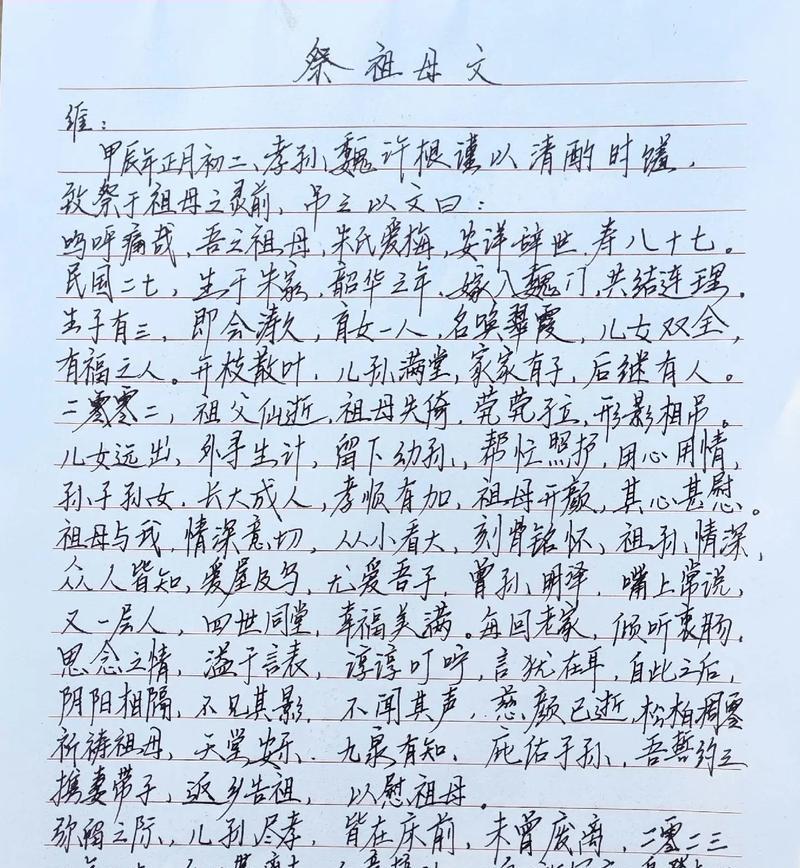 祭祖母文
维：
甲辰年正月初二、孝孙魏许根谨以清酌时馐，
致祭于祖母之灵前、吊之以文曰：
呜呼痛哉，吾之祖母，朱氏爱梅，安详辞世，寿八十七。
民国二七，生于朱家，韶华之年，嫁入魏门，共结连理。
生子有三，即会涛久，育女一人，名唤翠霞，儿女双全，
有福之人。开枝散叶，儿孙满堂，家家有子，后继有人。
二零零二，祖父仙逝，祖母失倚，茕茕孑立，形影相吊。
儿女远出，外寻生计，留下幼孙，帮忙照护，用心用情，
孙子孙女，长大成人，孝顺有加，祖母开颜，其心甚慰。
祖母与我，情深意切，从小看大，刻骨铭怀，祖孙情深，
众人皆知，爱屋及乌，尤爱吾子，曾孙明泽，嘴上常说，
又一层人，四世同堂，幸福美满。每回老家，倾听衷肠，
思念之情，溢于言表，谆谆叮咛，言犹在耳，自此之后，
阴阳相隔，不见其影，不闻其声，慈颜已逝，松柏凋零
祈祷祖母，天堂安乐，九泉有知，庇佑子孙，吾誓约之
携妻带子，返乡告祖，以慰祖母。
弥留之际，儿孙尽孝，皆在床前，未曾废离，二零二三